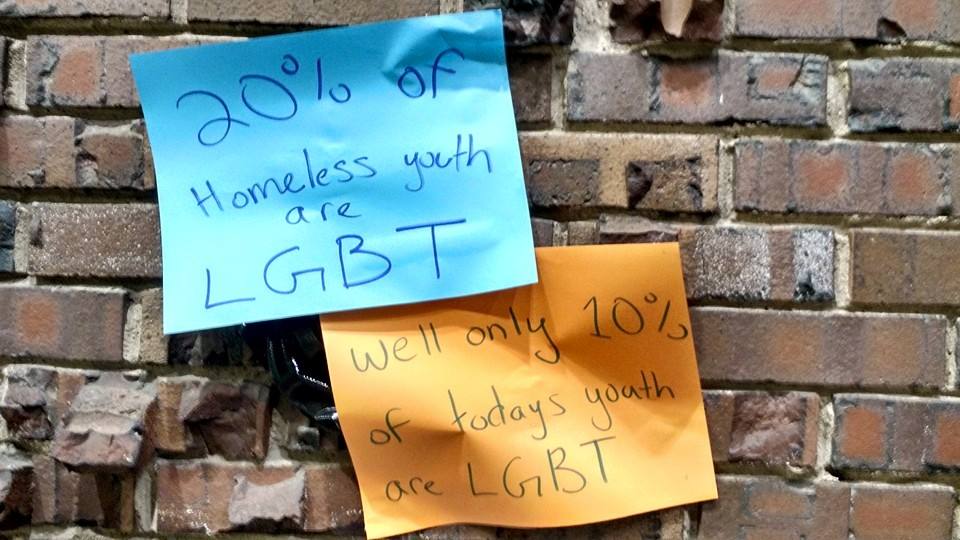 20% of
Homeless youth
are
LGBT
well only 10%
of todays youth
are LGBT